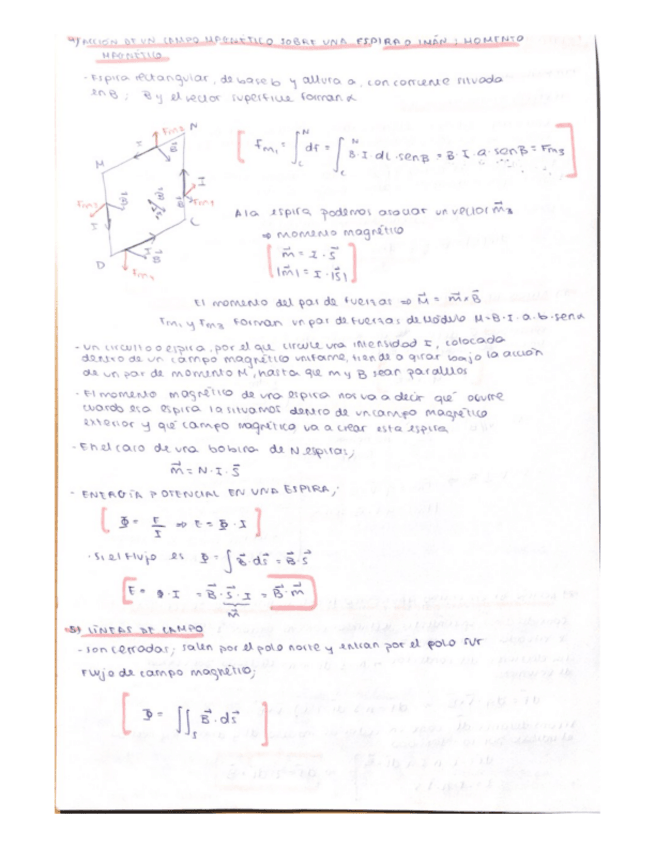 4) ACCIÓN DE UN CAMPO MAGNÉTICO SOBRE UNA ESPIRA O IMÁN; MOMENTO
MAGNÉTICO
- Espira rectangular, de base b y altura a, con corriente situada
en B; B y el vector superficie forman α
N
Fm2
I
M
B
I
Fm3
Fm1
C
D
Fm4
Fm₁ = ∫ dF = ∫ B · I · dL · senB = B · I · a · senB = Fm3
A la espira podemos asociar un vector m⃗
⇒ momento magnético
m⃗ = I · S⃗
|m⃗| = I · |S⃗|
El momento del par de fuerzas ⇒ M⃗ = m⃗ x B⃗
Fm₁ y Fm3 forman un par de fuerzas de módulo M=B·I·a·b·senα
- Un circuito o espira, por el que circule una intensidad I, colocada
dentro de un campo magnético uniforme, tiende a girar bajo la acción
de un par de momento M, hasta que m y B sean paralelos
- El momento magnético de una espira nos va a decir qué ocurre
cuando esa espira la situamos dentro de un campo magnético
exterior y qué campo magnético va a crear esta espira
- En el caso de una bobina de N espiras;
m⃗ = N · I · S⃗
- ENERGÍA POTENCIAL EN UNA ESPIRA;
Φ = E/I ⇒ E = Φ · I
· Si el flujo es Φ = ∫ B⃗ · ds⃗ = B⃗ · S⃗
E = Φ · I = B⃗ · S⃗ · I = B⃗ · m⃗
m⃗
5) LÍNEAS DE CAMPO
- Son cerradas; salen por el polo norte y entran por el polo sur
Flujo de campo magnético;
Φ = ∬ₛ B⃗ · ds⃗